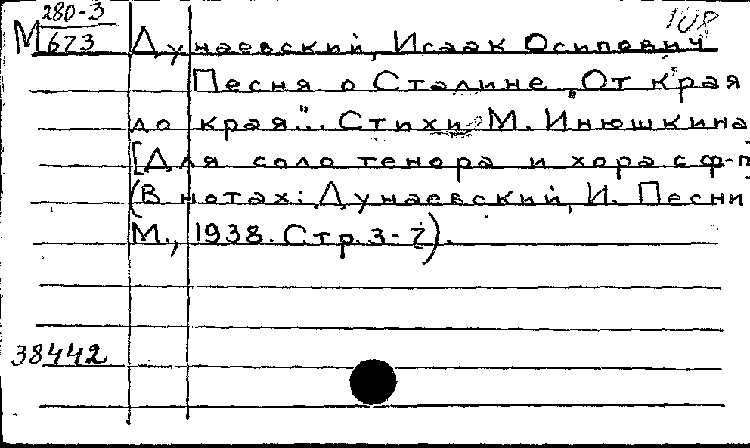 280-3
М 673
108
Дунаевский, Исаак Осипович
Песня о Сталине „От края
до края"... Стихи М. Инюшкина
[Для соло тенора и хора с ф-п]
(В нотах: Дунаевский, И. Песни
М., 1938. Стр. 3-7).
38442